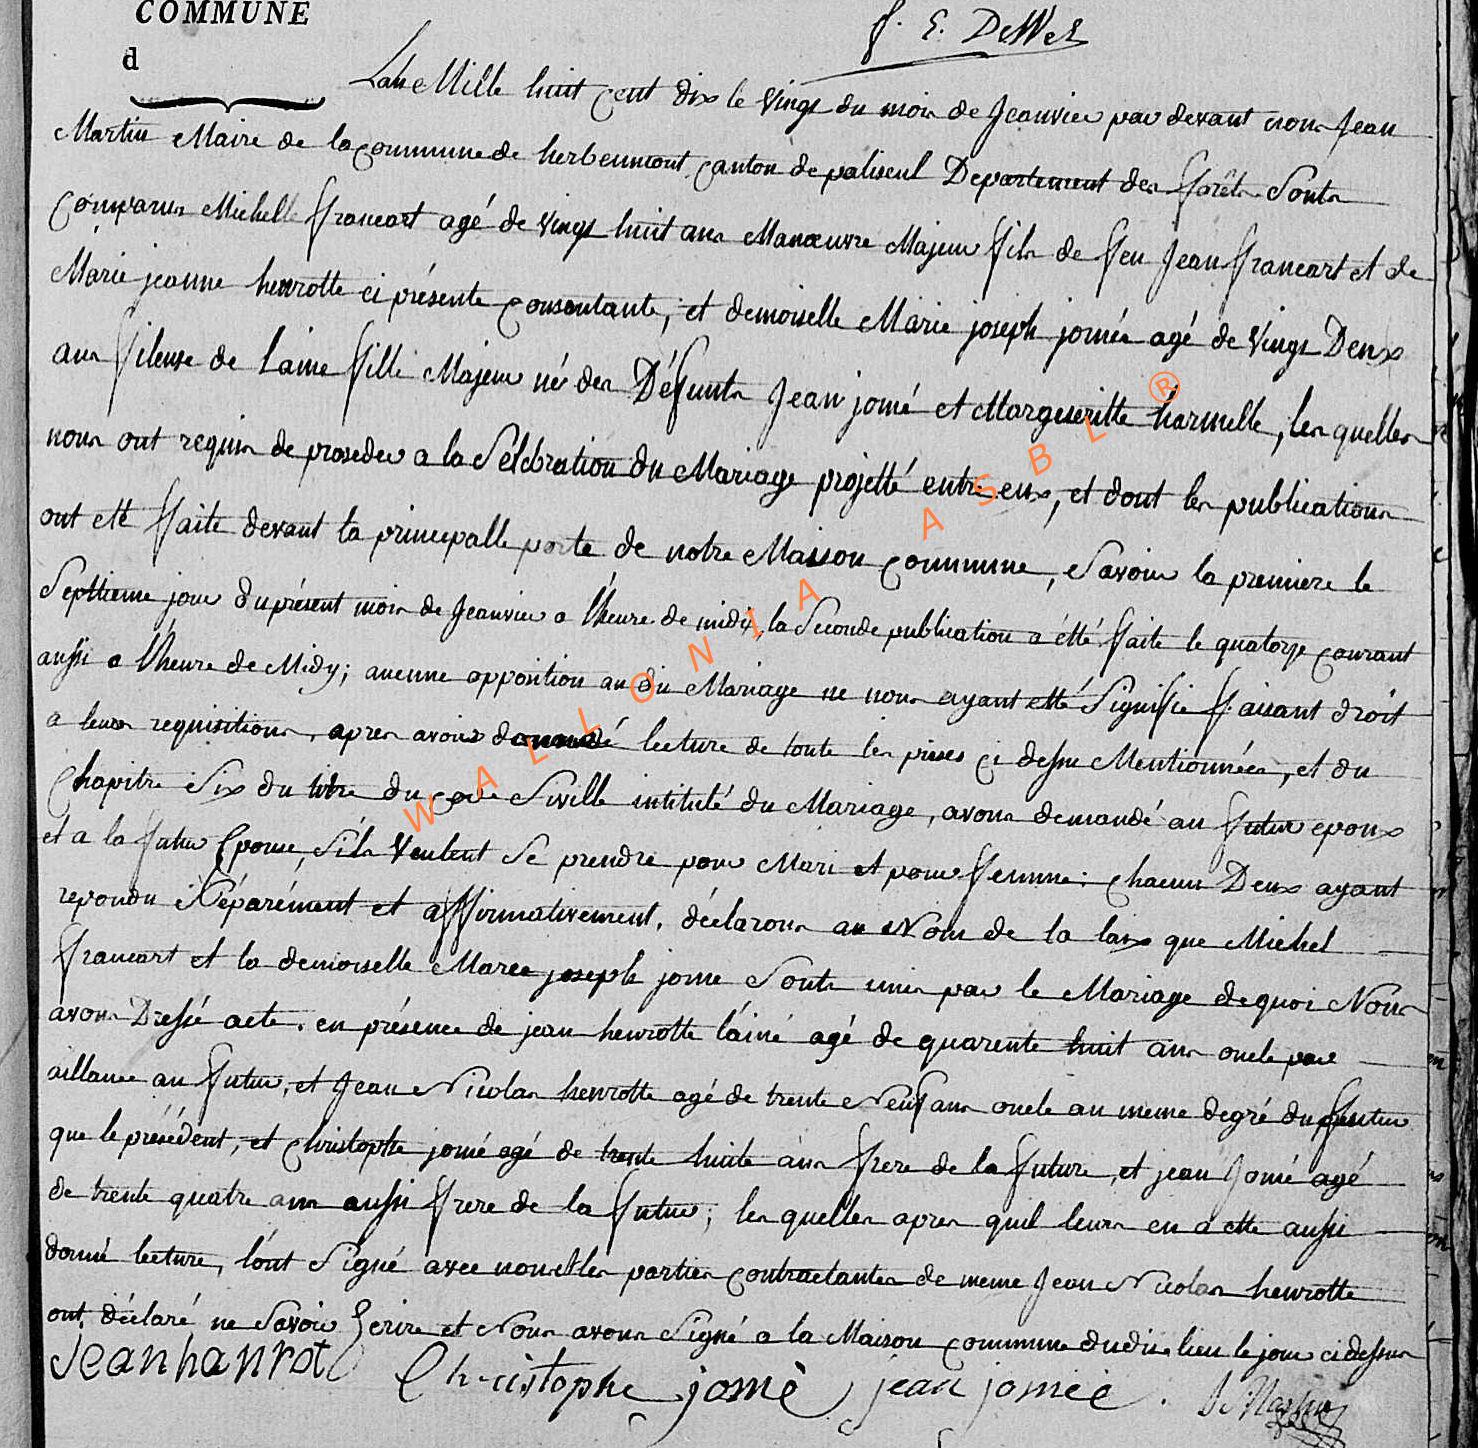 COMMUNE
d
f. E. DeWez
Lan Mille huit cent dix le vingt du mois de Jeanvier par devant nous Jean
Martin Maire de la commune de herbeumont canton de paliseul Departement des forêts Sonts
Comparus Michelle francart agé de vingt huit ans Manœuvre Majeur fils de feu Jean francart et de
Marie jeanne henrotte ci présente consentante, et demoiselle Marie joseph jomée agé de vingt Deux
ans fileuse de laine fille Majeur né des Défunts Jean jomé et Margueritte harmelle, les quelles
nous ont requis de proseder a la Selebration du Mariage projetté entre eux, et dont les publications
ont eté faite devant la principalle porte de notre Maison commune, Savoir la premiere le
Septtieme jour du présent mois de Jeanvier a l'heure de midi, la Seconde publication a étté faite le quatorze courant
aussi a l'heure de Midy; aucune apposition au dit Mariage ne nous ayant etté Signifie faisant droit
a leurs requisitions, apres avoir donné lecture de toute les pieses ci dessu Mentionnées, et du
Chapitre Six du titre du code Siville intitulé du Mariage, avons demandé au futur epoux
et a la futur Epouse, Sils veulent Se prendre pour Mari et pour femme: chacun Deux ayant
repondu Séparément et affirmativement, déclarons au Nom de la laix que Michel
francart et la demoiselle Maree joseph jome Sonts unis par le Mariage de quoi Nous
avons Dressé acte, en présence de jean henrotte l'ainé agé de quarente huit ans oncle par
aillance au futur, et Jean Nicolas henrotte agé de trente Neuf ans oncle au meme degré du futur
que le présédent, et Christophe jomé agé de trente huite ans frere de la future, et jean Jomé agé
de trente quatre ans aussi frere de la futur, les quelles apres quil leurs en a ette aussi
donné lecture, l'ont Signé avec nous et les parties contractantes de meme Jean Nicolas henrotte
ont déclaré ne Savoir Ecrire et Nous avons Signé a la Maison commune dudit lieu le jour ci dessus
jean hanrot Christophe jomé jean jomée J. Martin
WALLONIA ASBL ®